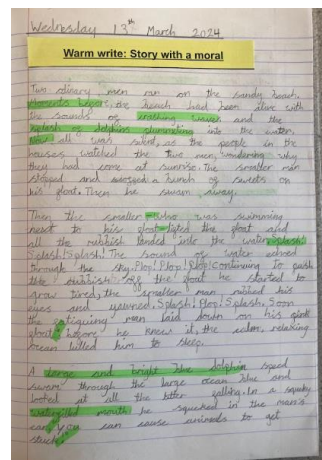 Wednesday 13th March 2024
Warm write: Story with a moral
Two odinary men ran on the sandy beach.
Moments before, the beach had been alive with
the sounds of crashing waves and the
splash of dolphins plummeting into the water.
Now all was silent, as the people in the
houses watched the two men, wondering why
they had come at sunrise. The smaller man
stopped and a bunch of sweets on
his float. Then he swam away.
Then the smaller - who was swimming
next to his float - the float and
all the rubbish landed into the water. Splash!
Splash! Splash! The sound of water echoed
through the sky. Plop! Plop! Plop! Continuing to push
the rubbish off the float he started to
grow tired, the smaller man rubbed his
eyes and yawned. Splash! Plop! Splash! Soon
the man laid down on his
float; before he knew it, the calm, relaxing
ocean lulled him to sleep.
A large and bright blue dolphin speed
swam through the large ocean blue and
looked at all the litter falling. In a squeaky
mouth he squeaked in the man's
ear, "You can cause animals to get
stuck."